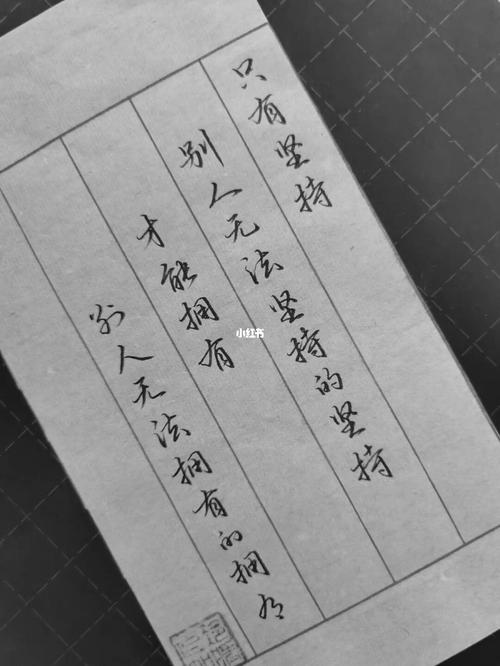 只有坚持
别人无法坚持的坚持
才能拥有
别人无法拥有的拥有
小红书